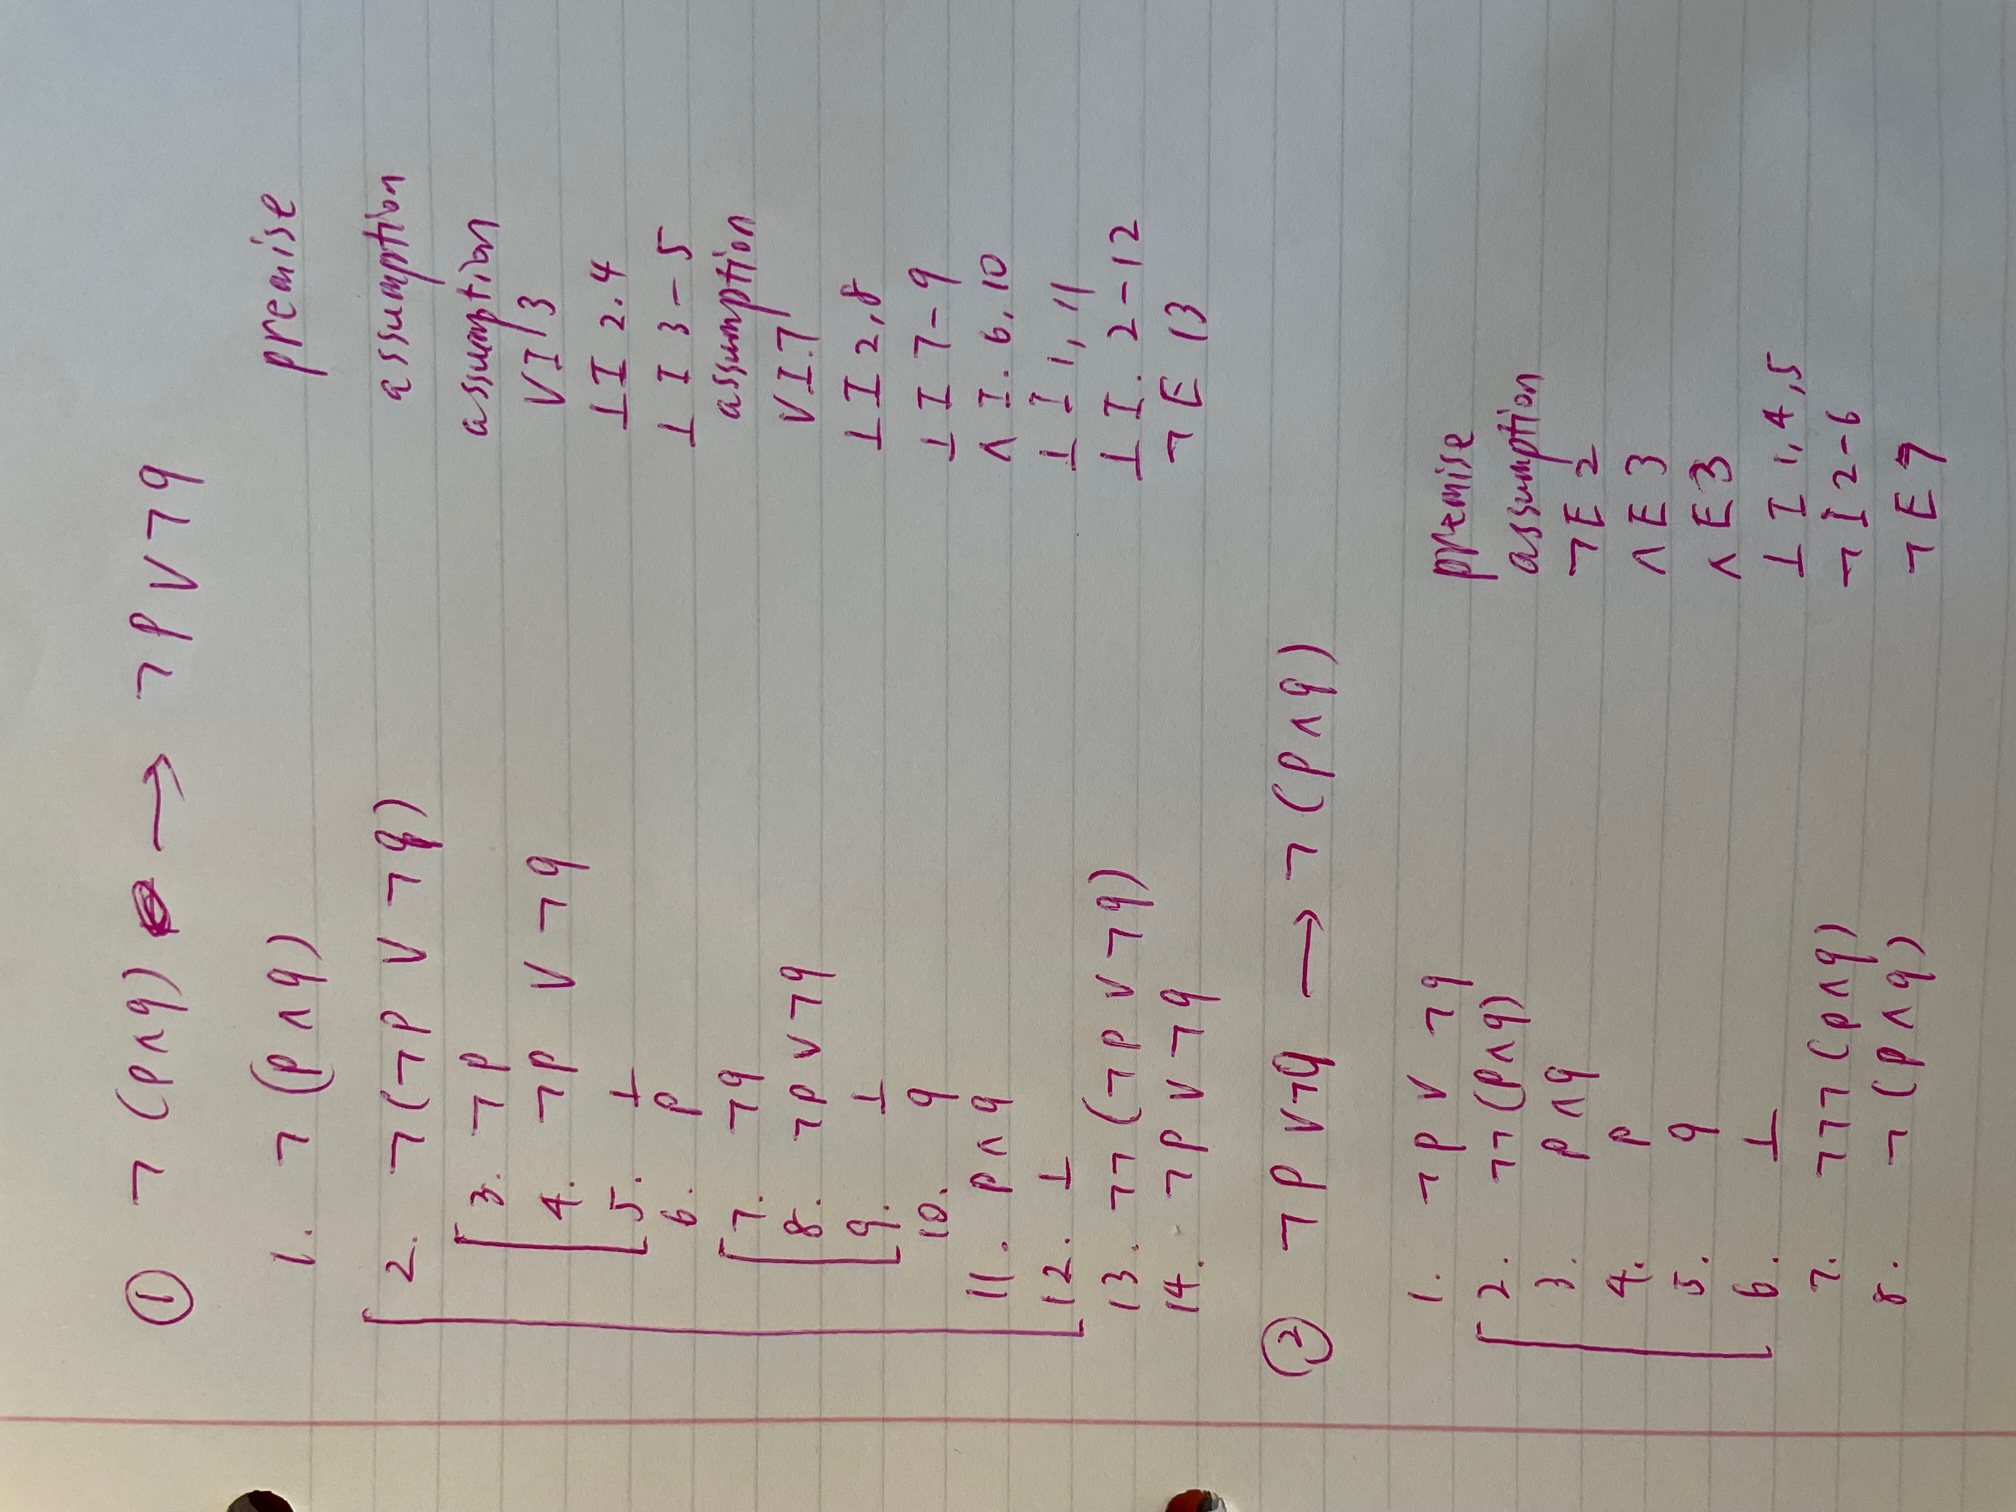 ① ¬(p∧q) → ¬p∨¬q
1. ¬(p∧q) premise
2. ¬(¬p ∨ ¬q) assumption
3. ¬p assumption
4. ¬p ∨ ¬q ∨I 3
5. ⊥ ⊥I 2.4
6. p ⊥I 3-5
7. ¬q assumption
8. ¬p∨¬q ∨I.7
9. ⊥ ⊥I 2,8
10. q ⊥I 7-9
11. p∧q ∧I. 6,10
12. ⊥ ⊥I 1,11
13. ¬¬(¬p∨¬q) ⊥I. 2-12
14. ¬p∨¬q ¬E 13
② ¬p∨¬q → ¬(p∧q)
1. ¬p ∨ ¬q premise
2. ¬¬(p∧q) assumption
3. p∧q ¬E 2
4. p ∧E 3
5. q ∧E 3
6. ⊥ ⊥I 1,4,5
7. ¬¬¬(p∧q) ¬I 2-6
8. ¬(p∧q) ¬E 7